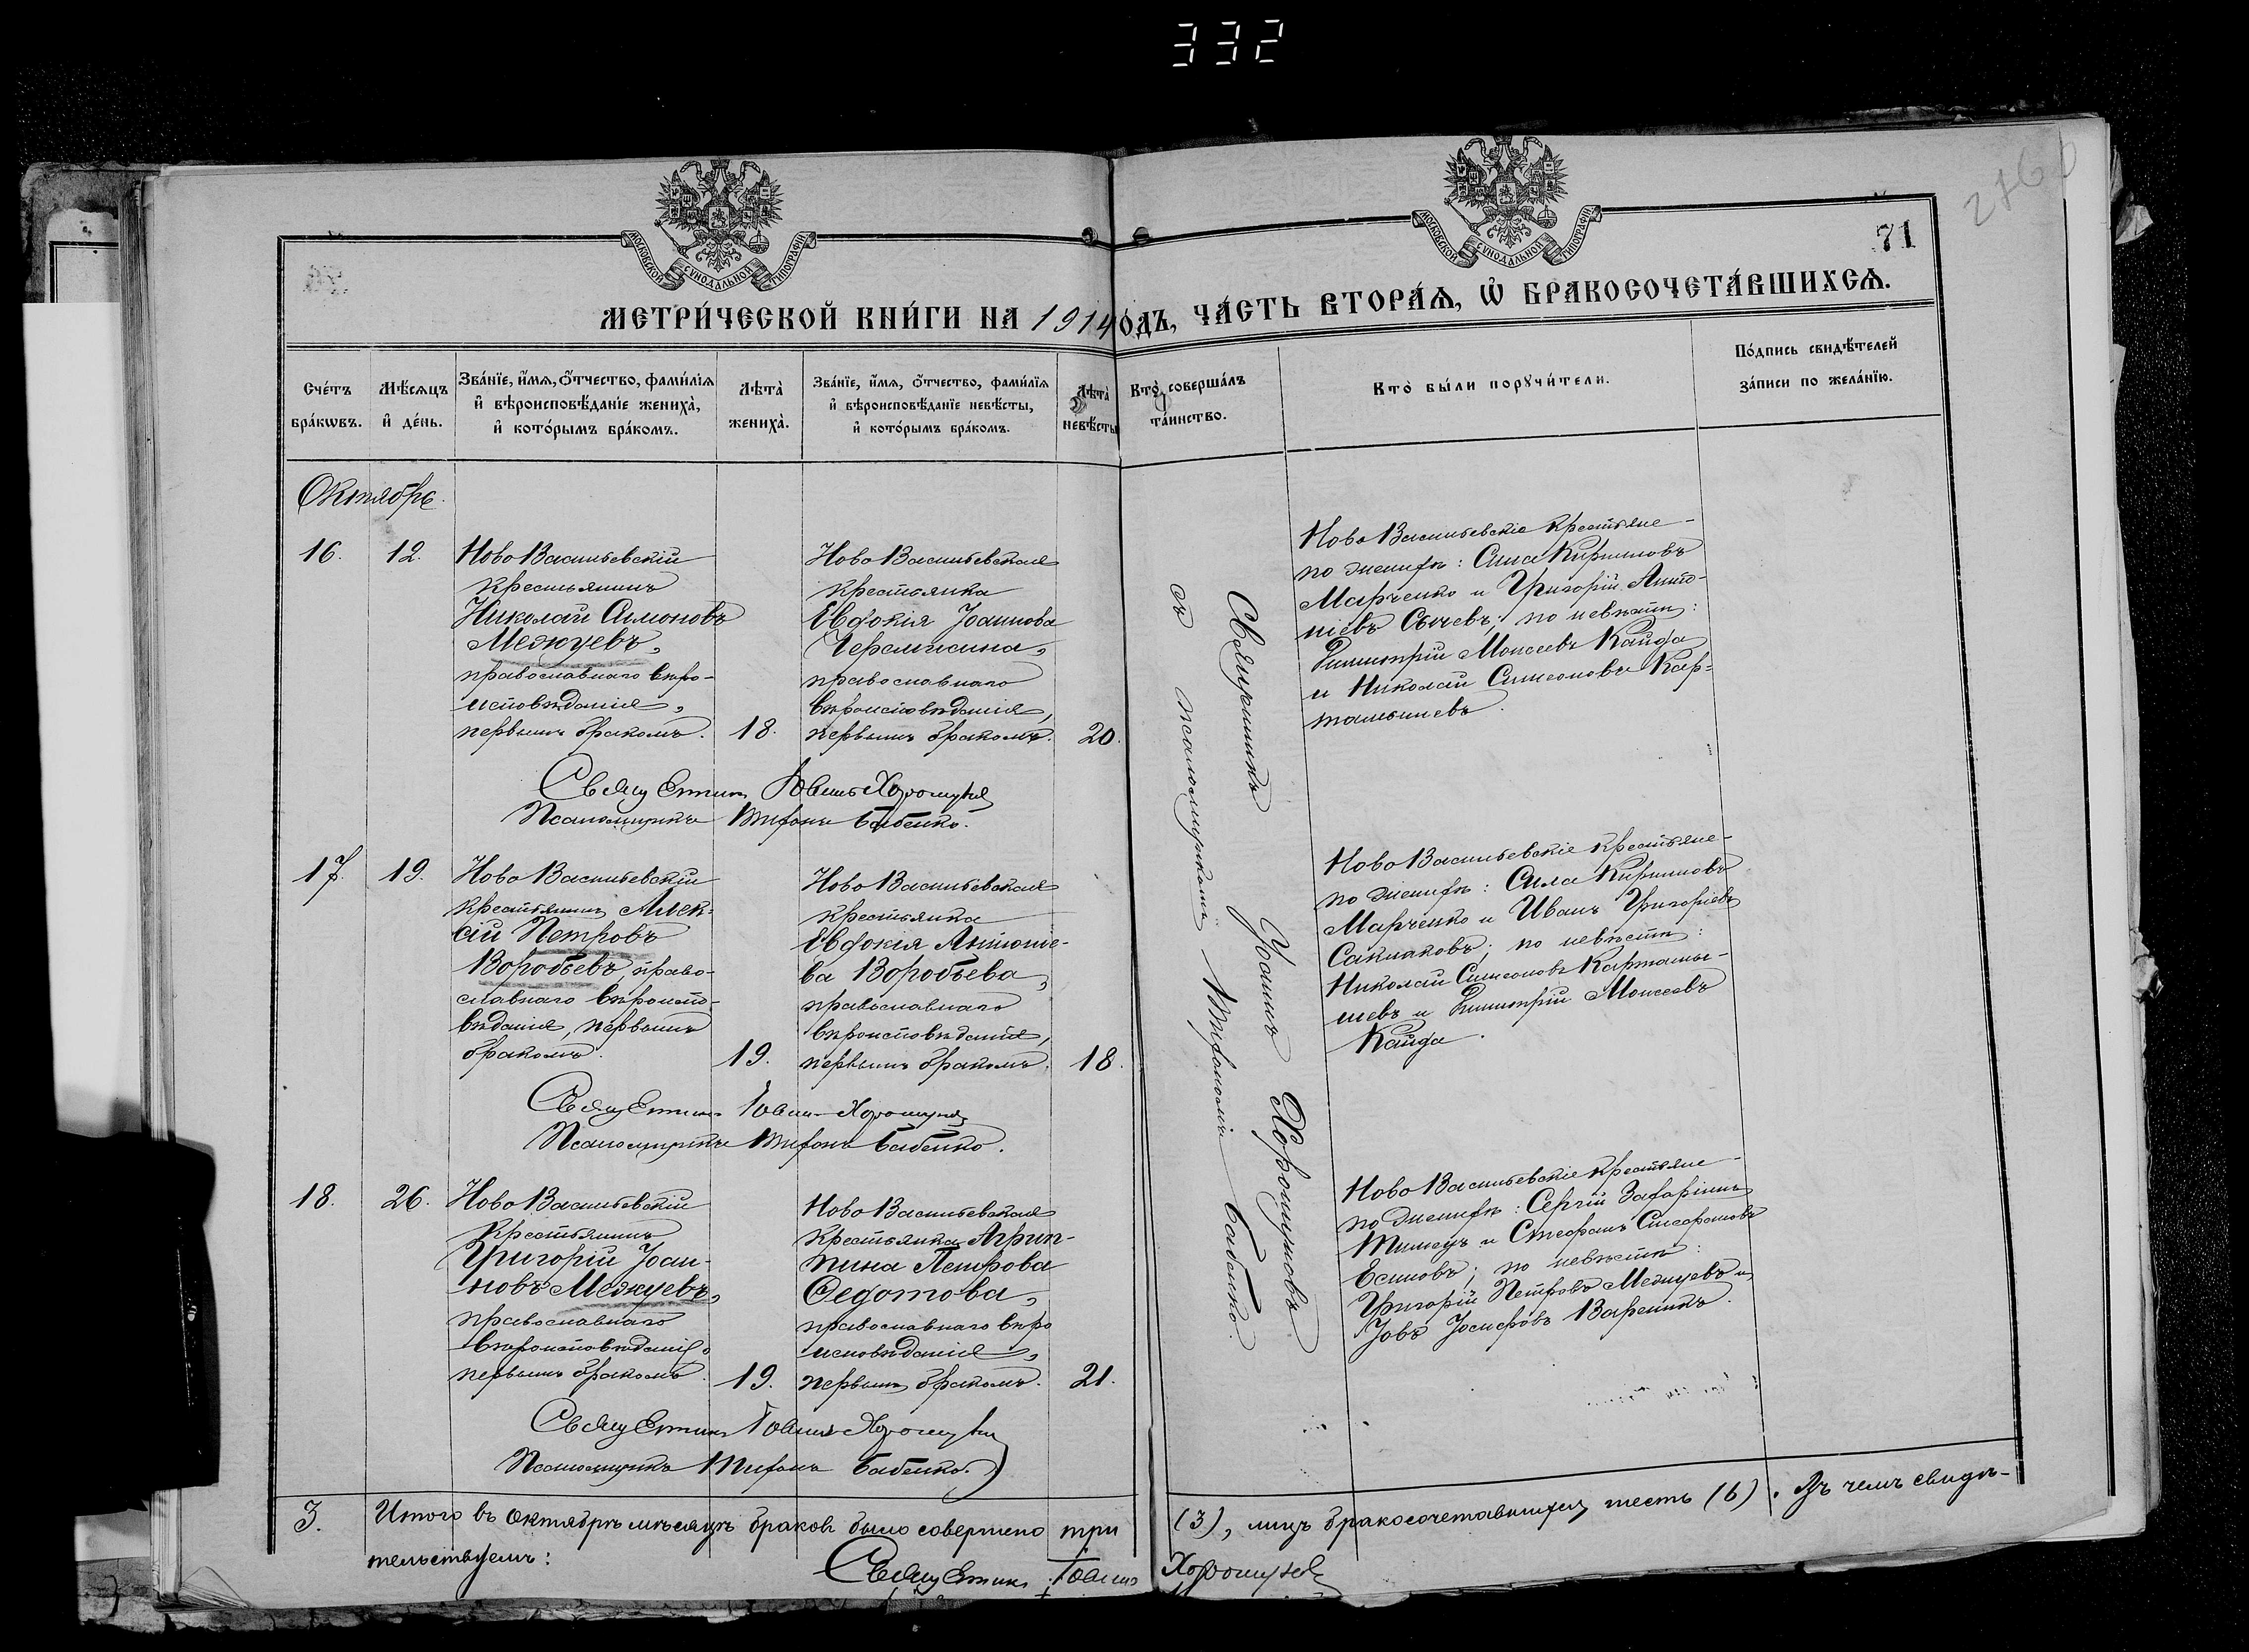 332
276
МОСКОВСКОЙ СѴНОДАЛЬНОЙ ТИПОГРАФІИ
МОСКОВСКОЙ СѴНОДАЛЬНОЙ ТИПОГРАФІИ
71
МЕТРИ́ЧЕСКОЙ КНИ́ГИ НА 1914 ОДЪ, ЧА́СТЬ ВТОРА́Ѧ, Ѡ БРАКОСОЧЕТА́ВШИХСѦ.
Сче́тъ
бра́кѡвъ.
Мѣ́сѧцъ
и҆ де́нь.
Зва́нїе, и҆́мѧ, ѻ҆́тчество, фами́лїѧ
и҆ вѣроисповѣ́данїе жениха̀,
и҆ кото́рымъ бра́комъ.
Лѣта̀
жениха̀.
Зва́нїе, и҆́мѧ, ѻ҆́тчество, фами́лїѧ
и҆ вѣроисповѣ́данїе невѣ́сты,
и҆ кото́рымъ бра́комъ.
Лѣта̀
невѣ́сты
Кто̀ соверша́лъ
та́инство.
Кто̀ бы́ли порꙋчи́тели.
По́дпись свидѣ́телей
за́писи по жела́нїю.
Октябрь
16.
12.
Ново Васильевскій
крестьянинъ
Николай Симоновъ
Межуевъ,
православнаго вѣро-
исповѣданія,
первымъ бракомъ.
18.
Ново Васильевская
крестьянка
Евдокія Іоаннова
Черемисина,
православнаго
вѣроисповѣданія,
первымъ бракомъ.
20.
Священникъ Іоаннъ Хорошуновъ
съ псаломщикомъ Тифономъ Бабенко.
Ново Васильевскіе крестьяне
по женихѣ: Сила Кирилловъ
Марченко и Григорій Анто-
ніевъ Сычевъ; по невѣстѣ:
Димитрій Моисеевъ Кайда
и Николай Симеоновъ Кар-
тамышевъ.
Священникъ Іоаннъ Хорошуновъ
Псаломщикъ Тифонъ Бабенко.
17.
19.
Ново Васильевскій
крестьянинъ Алек-
сій Петровъ
Воробьевъ, право-
славнаго вѣроиспо-
вѣданія, первымъ
бракомъ.
19.
Ново Васильевская
крестьянка
Евдокія Антоніе-
ва Воробьева,
православнаго
вѣроисповѣданія,
первымъ бракомъ.
18.
Ново Васильевскіе крестьяне
по женихѣ: Сила Кирилловъ
Марченко и Иванъ Григорьевъ
Саклаковъ; по невѣстѣ:
Николай Симеоновъ Картамы-
шевъ и Димитрій Моисеевъ
Кайда.
Священникъ Іоаннъ Хорошуновъ
Псаломщикъ Тифонъ Бабенко.
18.
26.
Ново Васильевскій
крестьянинъ
Григорій Іоан-
новъ Межуевъ,
православнаго
вѣроисповѣданія,
первымъ бракомъ.
19.
Ново Васильевская
крестьянка Агрип-
пина Петрова
Ѳедотова,
православнаго вѣро
исповѣданія,
первымъ бракомъ.
21.
Ново Васильевскіе крестьяне
по женихѣ: Сергій Захаріинъ
и Стефанъ
Есиповъ; по невѣстѣ:
Григорій Петровъ Межуевъ и
Іовъ Іосифовъ Вареникъ.
Священникъ Іоаннъ Хорошуновъ
Псаломщикъ Тифонъ Бабенко.
3.
Итого въ октябрѣ мѣсяцѣ браковъ было совершено три (3), лицъ бракосочетавшихся шесть (6). Въ чемъ свидѣ-
тельствуемъ:
Священникъ Іоаннъ Хорошуновъ